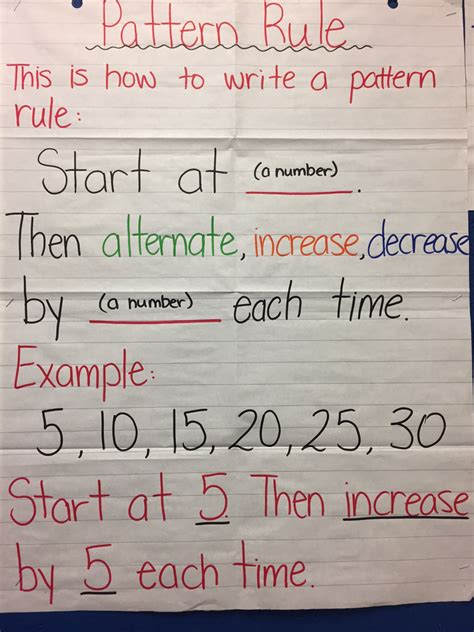 Pattern Rule
This is how to write a pattern
rule:
Start at (a number).
Then alternate, increase, decrease
by (a number) each time.
Example:
5, 10, 15, 20, 25, 30
Start at 5. Then increase
by 5 each time.